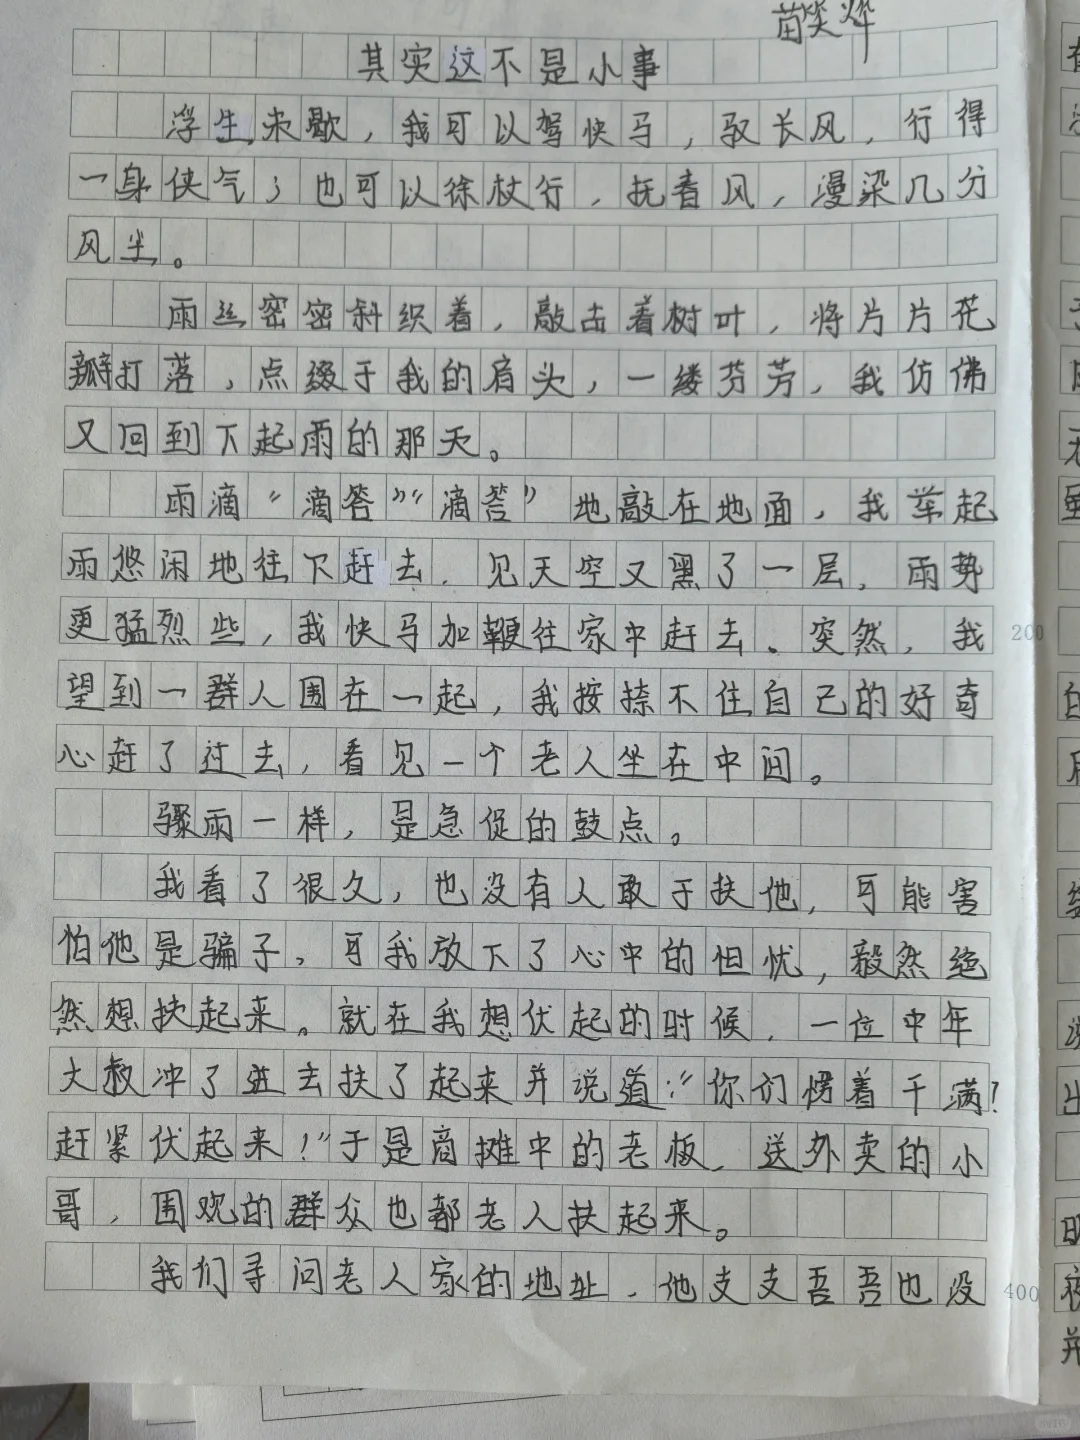 苗笑烨
其实这不是小事
浮生未歇，我可以驾快马，驭长风，行得
一身侠气；也可以徐杖行，抚春风，漫染几分
风尘。
雨丝密密斜织着，敲击着树叶，将片片花
瓣打落，点缀于我的肩头，一缕芬芳，我仿佛
又回到下起雨的那天。
雨滴“滴答”“滴答”地敲在地面，我举起
雨悠闲地往下赶去，见天空又黑了一层，雨势
更猛烈些，我快马加鞭往家中赶去。突然，我
望到一群人围在一起，我按捺不住自己的好奇
心赶了过去，看见一个老人坐在中间。
骤雨一样，是急促的鼓点。
我看了很久，也没有人敢于扶他，可能害
怕他是骗子，可我放下了心中的担忧，毅然绝
然想扶起来。就在我想伏起的时候，一位中年
大叔冲了进去扶了起来并说道：“你们愣着干满？
赶紧伏起来！”于是商摊中的老板，送外卖的小
哥，围观的群众也都老人扶起来。
我们寻问老人家的地址，他支支吾吾也没
200
400